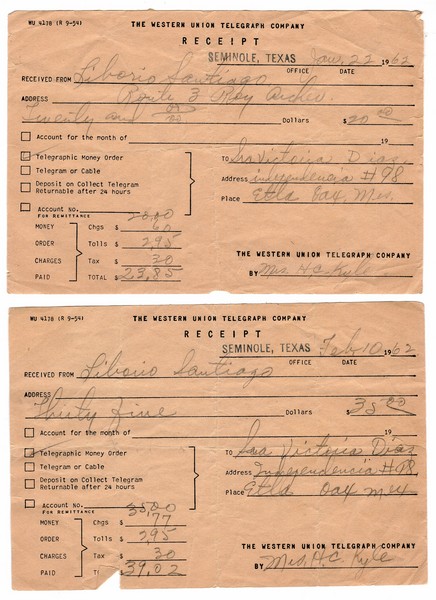 WU 4178 (R 9-54) THE WESTERN UNION TELEGRAPH COMPANY
RECEIPT
SEMINOLE, TEXAS Jan. 22 1962
OFFICE DATE
RECEIVED FROM Liborio Santiago
ADDRESS Route 3 Roy
Twenty and 00/00 Dollars $20 00
Account for the month of 19
Telegraphic Money Order TO Sra Victoria Diaz
Telegram or Cable Address independencia # 98
Deposit on Collect Telegram
Returnable after 24 hours Place Etla Oax, Mex
Account No. 20.00
FOR REMITTANCE
MONEY Chgs $ 60
ORDER Tolls $ 2.95 THE WESTERN UNION TELEGRAPH COMPANY
CHARGES Tax $ 30
PAID TOTAL $ 23.85 BY Mrs. H.C. Kyle
WU 4178 (R 9-54) THE WESTERN UNION TELEGRAPH COMPANY
RECEIPT
SEMINOLE, TEXAS Feb 10 1962
OFFICE DATE
RECEIVED FROM Liborio Santiago
ADDRESS
Thirty Five Dollars $35 00
Account for the month of 19
Telegraphic Money Order TO Sra Victoria Diaz
Telegram or Cable Address Independencia # 98
Deposit on Collect Telegram
Returnable after 24 hours Place Etla Oax Mex
Account No. 35.00
FOR REMITTANCE
MONEY Chgs $ 77
ORDER Tolls $ 2.95
CHARGES Tax $ 30 THE WESTERN UNION TELEGRAPH COMPANY
PAID 39.02 BY Mrs. H.C. Kyle